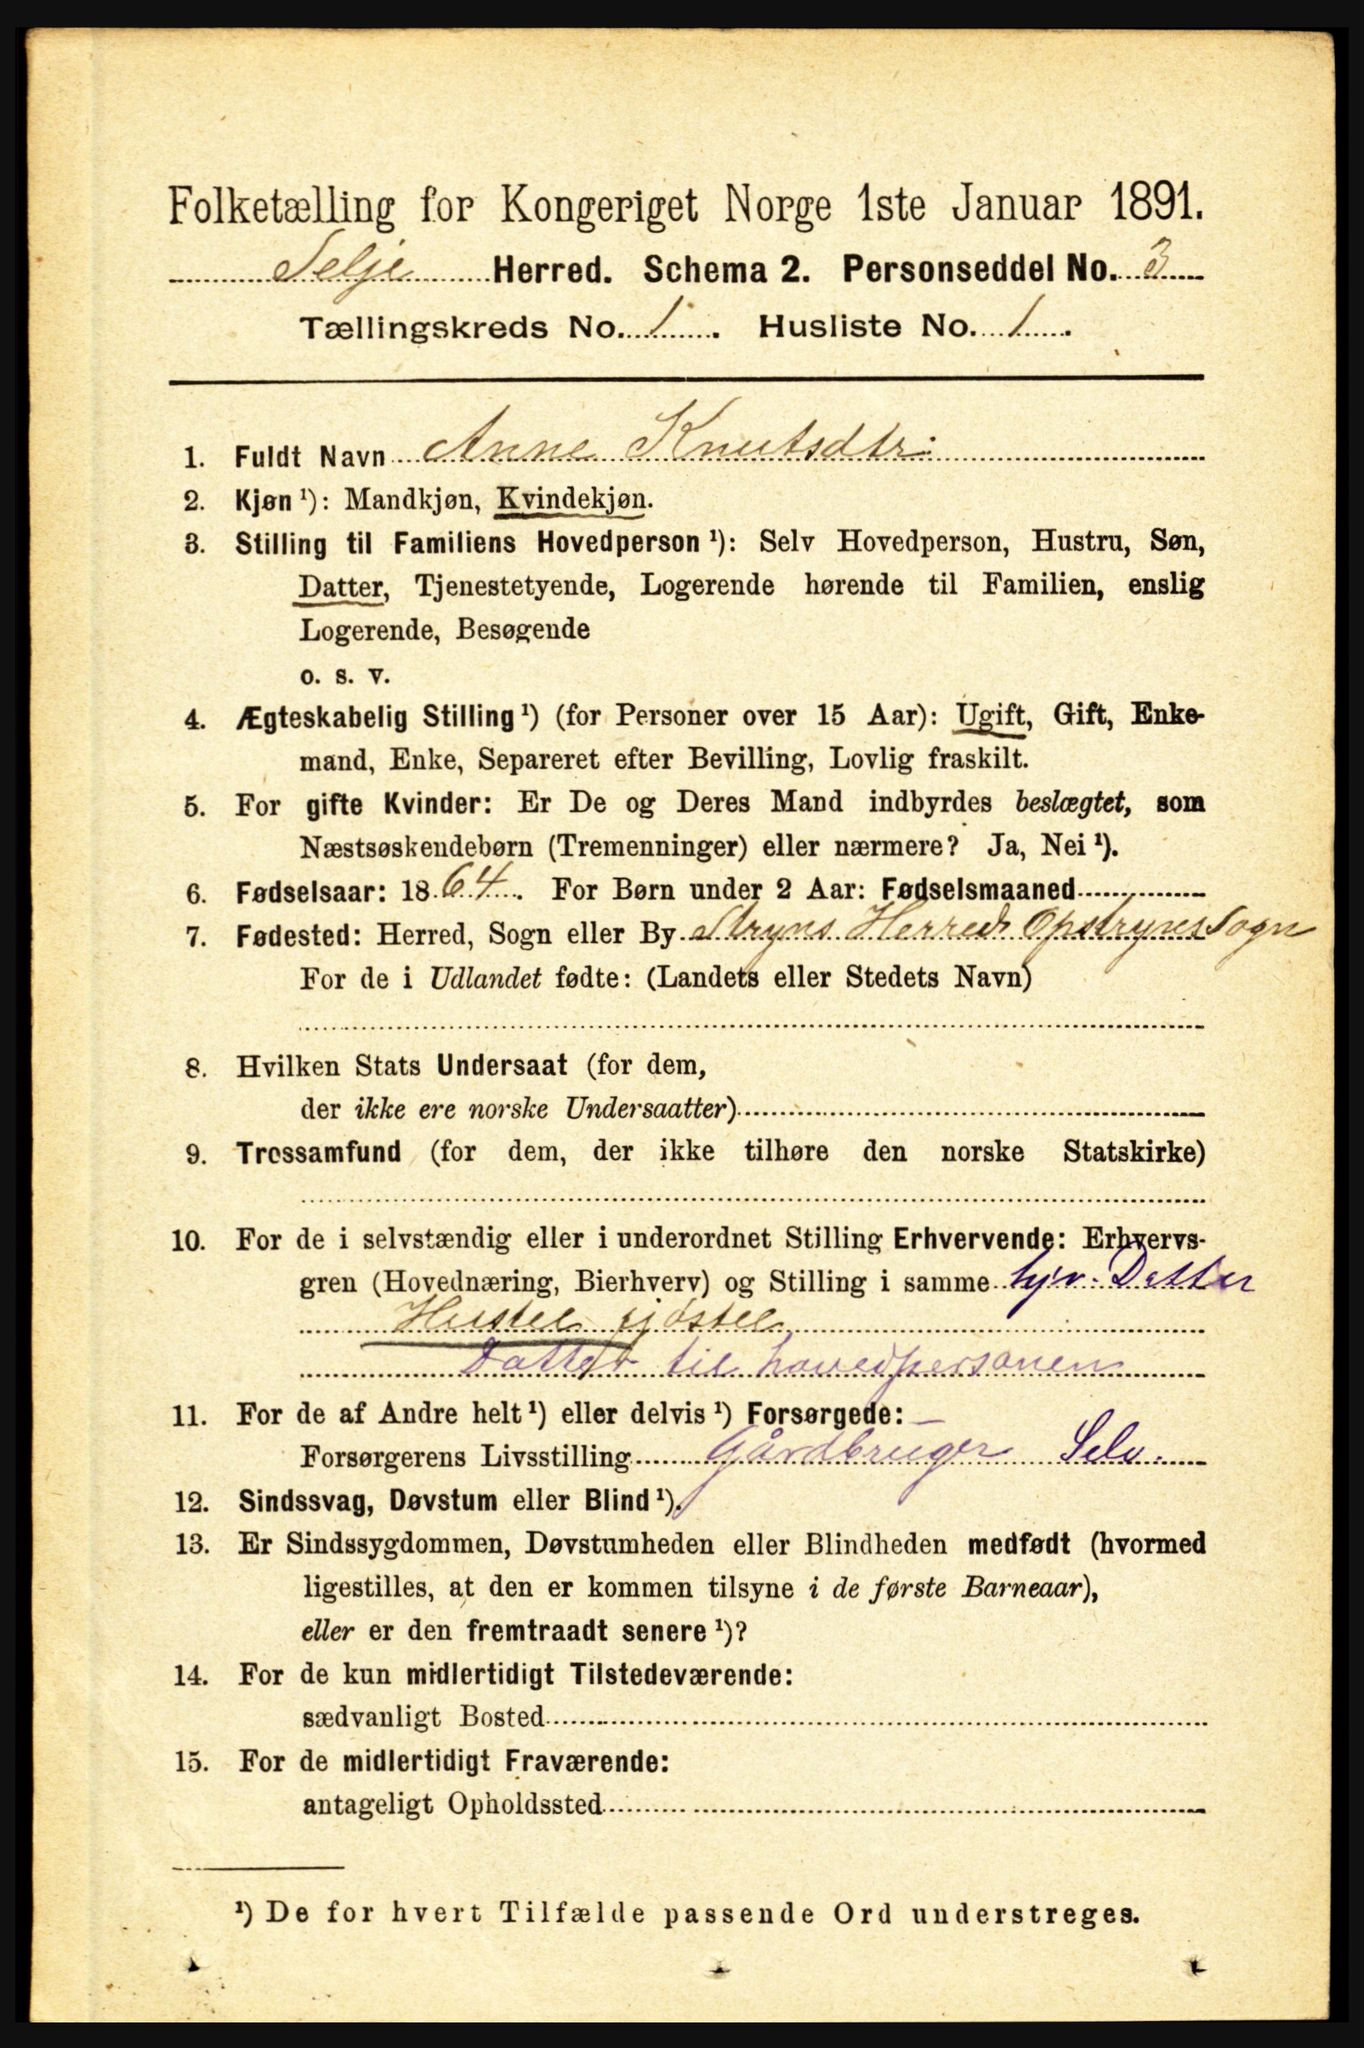 Folketælling for Kongeriget Norge 1ste Januar 1891.
Selje Herred. Schema 2. Personseddel No. 3
Tællingskreds No. 1. Husliste No. 1.
1. Fuldt Navn Anne Knutsdtr:
2. Kjøn ¹): Mandkjøn, Kvindekjøn.
3. Stilling til Familiens Hovedperson ¹): Selv Hovedperson, Hustru, Søn,
Datter, Tjenestetyende, Logerende hørende til Familien, enslig
Logerende, Besøgende
o. s. v.
4. Ægteskabelig Stilling ¹) (for Personer over 15 Aar): Ugift, Gift, Enke-
mand, Enke, Separeret efter Bevilling, Lovlig fraskilt.
5. For gifte Kvinder: Er De og Deres Mand indbyrdes beslægtet, som
Næstsøskendebørn (Tremenninger) eller nærmere? Ja, Nei ¹).
6. Fødselsaar: 1864. For Børn under 2 Aar: Fødselsmaaned
7. Fødested: Herred, Sogn eller By Stryns Herred Opstryns Sogn
For de i Udlandet fødte: (Landets eller Stedets Navn)
8. Hvilken Stats Undersaat (for dem,
der ikke ere norske Undersaatter)
9. Trossamfund (for dem, der ikke tilhøre den norske Statskirke)
10. For de i selvstændig eller i underordnet Stilling Erhvervende: Erhvervs-
gren (Hovednæring, Bierhverv) og Stilling i samme hjv. Datter
Hustel fjøstel
Datter til hovedpersonen
11. For de af Andre helt ¹) eller delvis ¹) Forsørgede: —
Forsørgerens Livsstilling Gårdbruger Selv.
12. Sindssvag, Døvstum eller Blind ¹).
13. Er Sindssygdommen, Døvstumheden eller Blindheden medfødt (hvormed
ligestilles, at den er kommen tilsyne i de første Barneaar),
eller er den fremtraadt senere ¹)?
14. For de kun midlertidigt Tilstedeværende:
sædvanligt Bosted
15. For de midlertidigt Fraværende:
antageligt Opholdssted
¹) De for hvert Tilfælde passende Ord understreges.